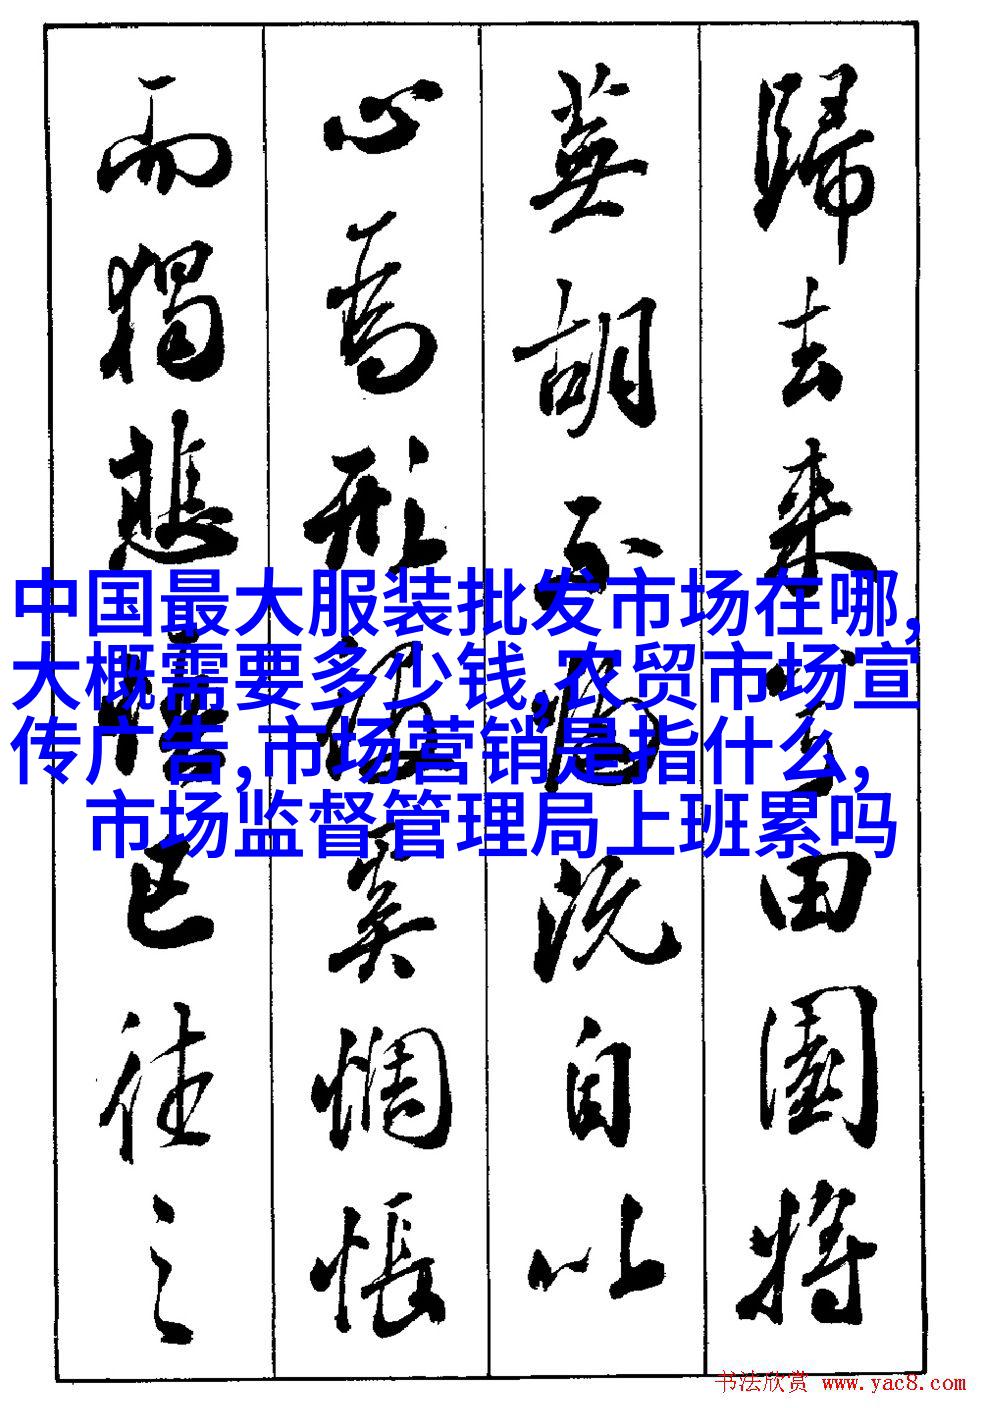 歸去来兮田園将
蕪胡不歸既自以
心為形役奚惆悵
而獨悲悟已往之
中国最大服装批发市场在哪,
大概需要多少钱,农贸市场宣
传广告,市场营销是指什么,
市场监督管理局上班累吗
书法欣赏 www.yac8.com